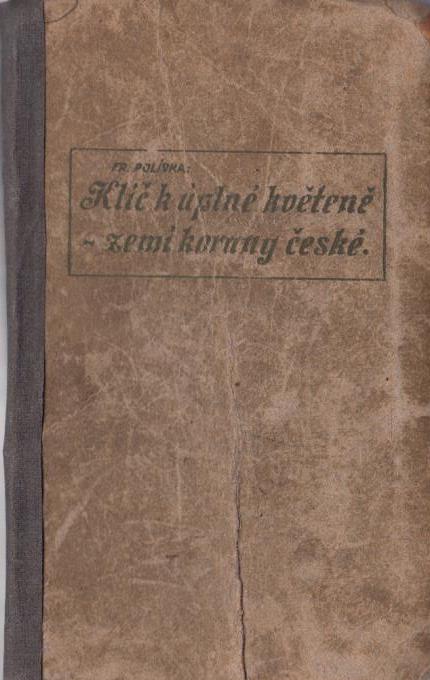 FR. POLÍVKA:
Klíč k úplné květeně
~ zemí koruny české.